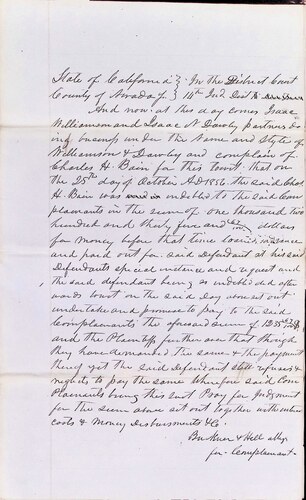 State of California } In the District Court
County of Nevada } 14th Jud Dist
And now at this day comes Isaac
Williamson and Isaac N Dawley partners do
ing business under the Name and Style of
Williamson & Dawley and complain of
Charles H. Bain for this Court, that on
the 25th day of October AD 1856 the said Chas
H. Bain was indebted to the said Com
plainants in the sum of one thousand two
hundred and thirty five and dollars
for money before that time loaned
and paid out for said Defendant at his said
Defendants special instance and request and
the said defendant being so indebted did after
wards to wit on the said day above set out
undertake and promise to pay to the said
Complainants the aforesaid sum of 1235
and the Plaintiffs further aver that though
they have demanded the same & the payment
thereof yet the said Defendant still refuses &
neglects to pay the same Wherefore said Com
plainants bring this suit Pray for Judgment
for the sum above set out together with their
costs & Money Disbursments &c.
Buckner & Hill attys
for Complainant